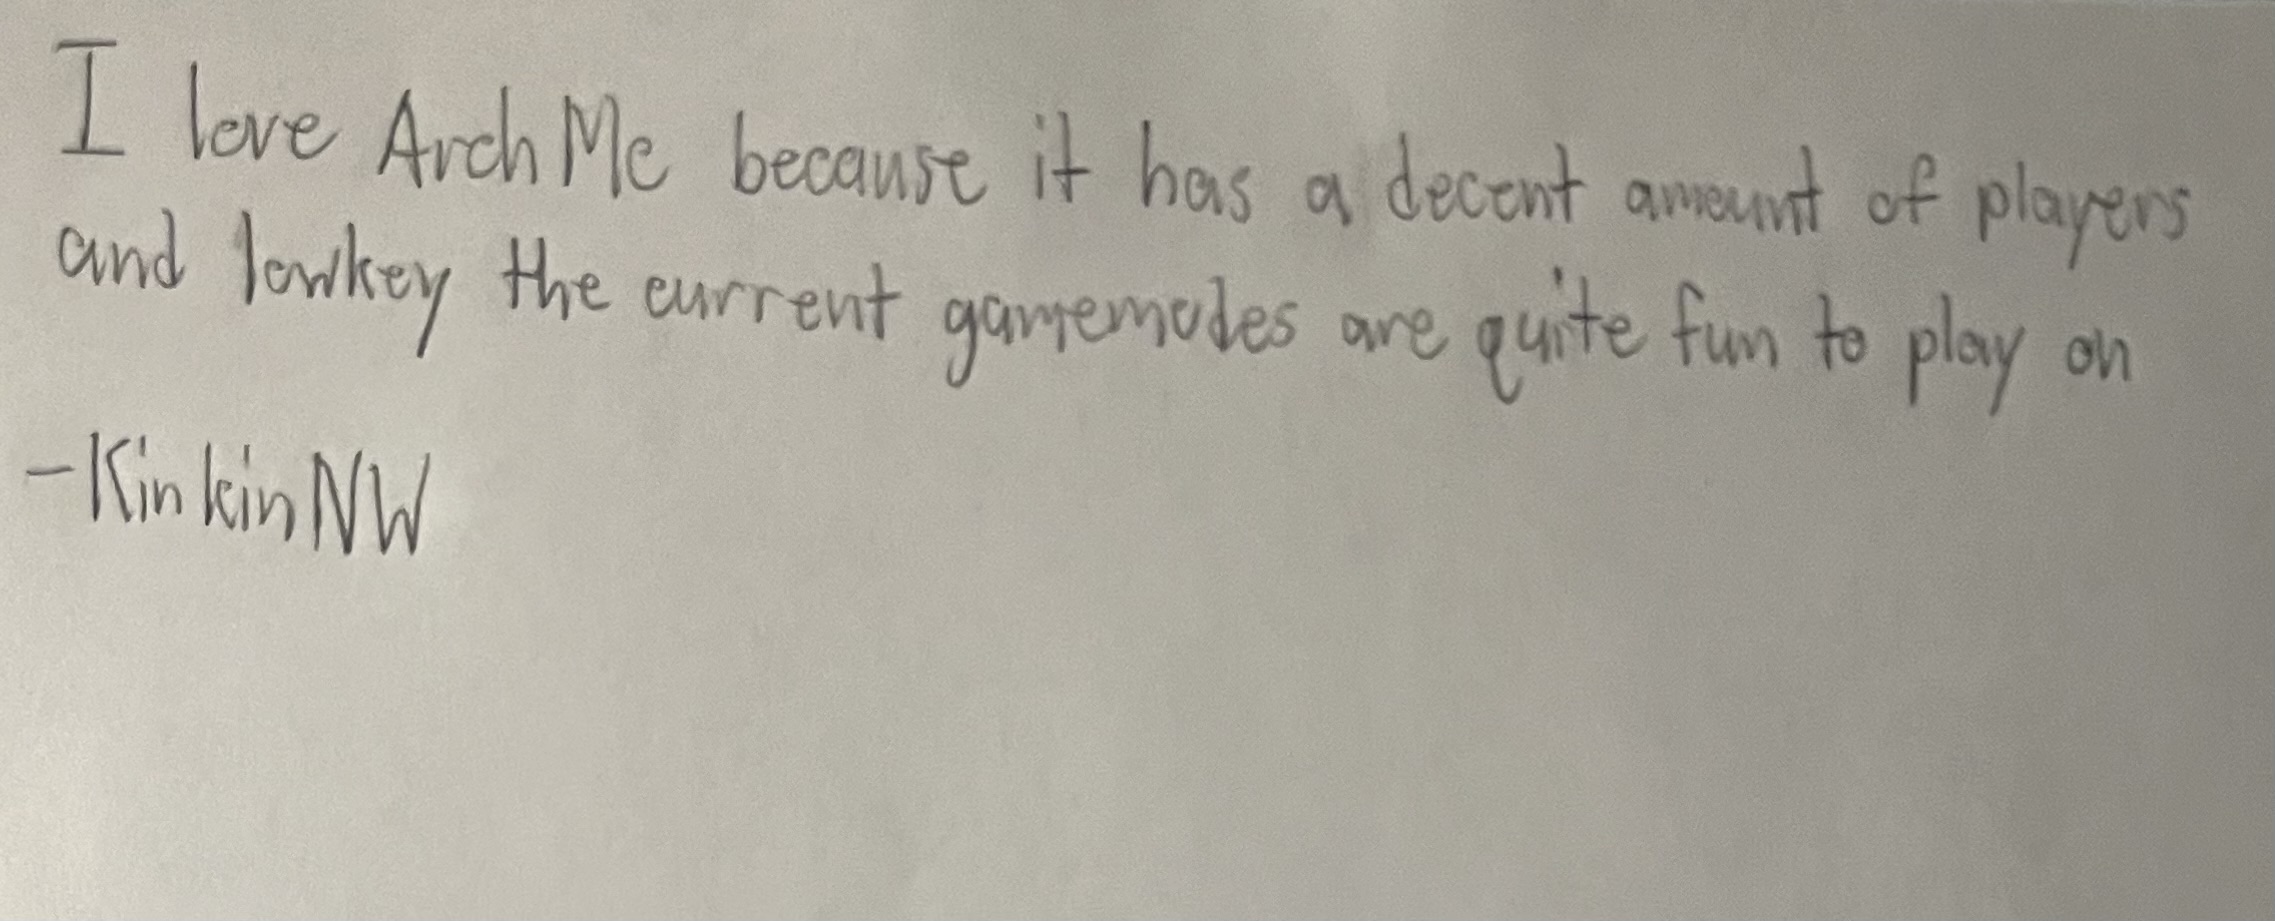 I love ArchMc because it has a decent amount of players
and lowkey the current gamemodes are quite fun to play on
-KinkinNW